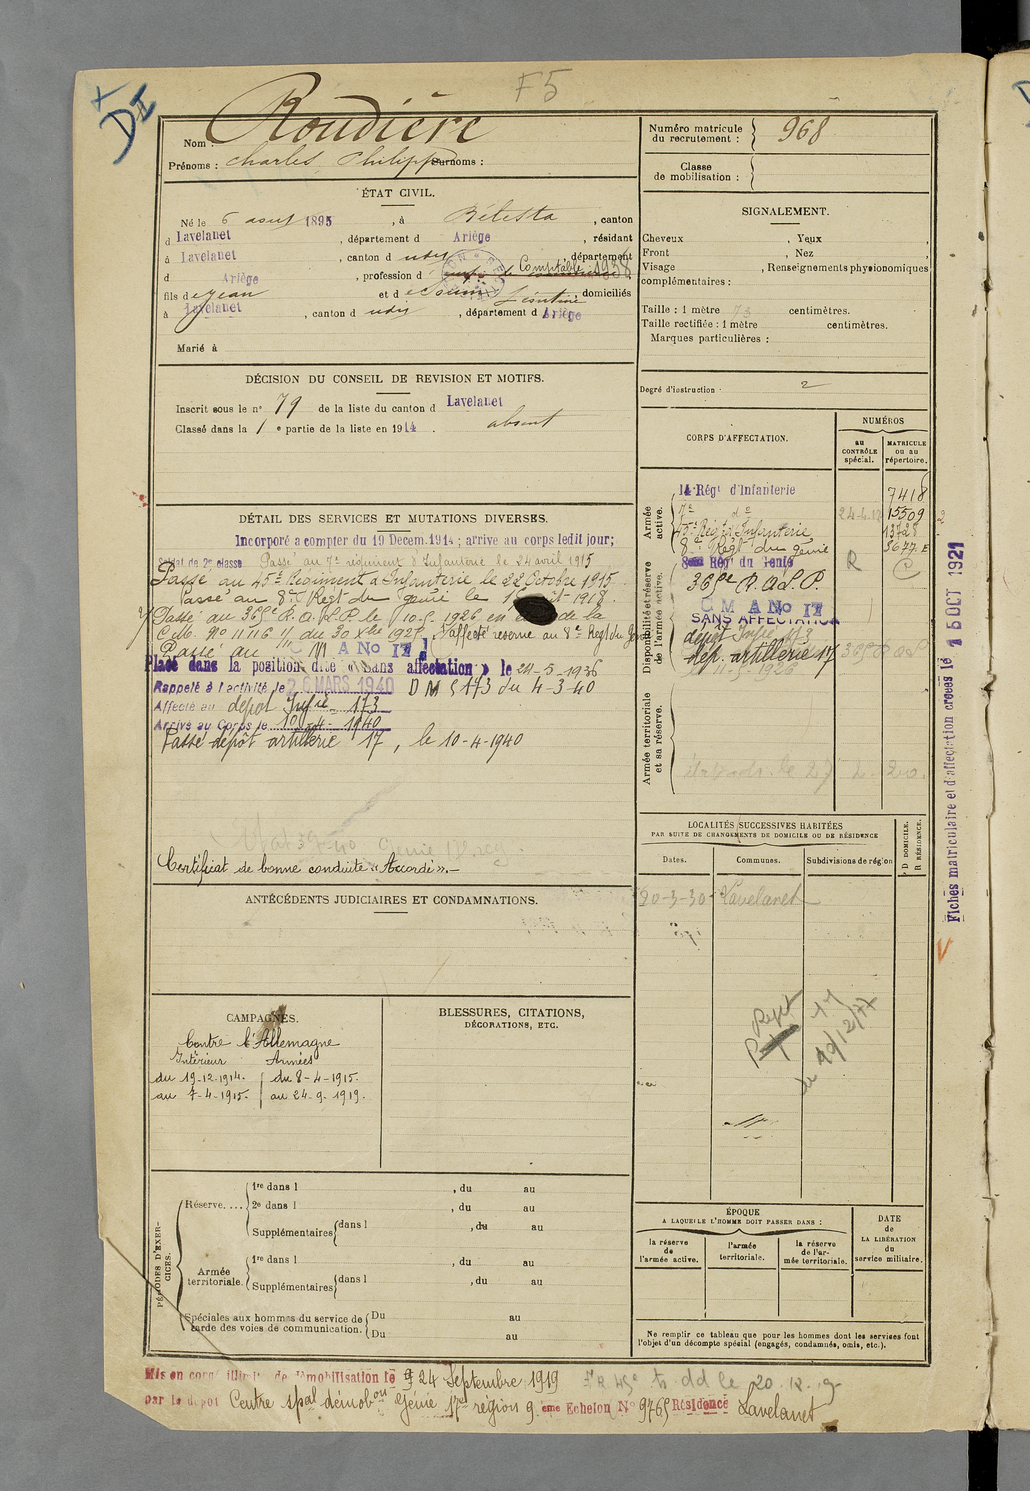 F5
DI
Nom : Roudière
Prénoms : Charles Philippe Surnoms :
ÉTAT CIVIL.
Né le 6 aout 1895, à Bélesta, canton
d Lavelanet, département d Ariège, résidant
à Lavelanet, canton d udit, département
d Ariège, profession d Comptable 1938
fils de Jean et de Léontine, domiciliés
à Lavelanet, canton d udit, département d Ariège
Marié à
DÉCISION DU CONSEIL DE REVISION ET MOTIFS.
Inscrit sous le n° 79 de la liste du canton d Lavelanet
Classé dans la 1e partie de la liste en 1914. absent
DÉTAIL DES SERVICES ET MUTATIONS DIVERSES.
Incorporé a compter du 19 Decem. 1914; arrive au corps ledit jour;
Soldat de 2e classe Passé au 7e régiment d'Infanterie le 24 avril 1915
Passé au 45e Régiment d'Infanterie le 22 Octobre 1915
Passé au 8e Régt du génie le 1918.
Passé au 36e R.A.L.P. le 10-5-1926 en de la
Cm. No 11116 1/ du 30 Xbre 1927, affecté reserve au 8e Regt du Genie
Passé au C M A No 17
Placé dans la position dite « Sans affectation » le 24-5-1936
Rappelé à l'activité le 26 MARS 1940 DM 5173 du 4-3-40
Affecté au dépôt Infie 173
Arrivé au Corps le 10-4-1940
Passé dépôt artillerie 17, le 10-4-1940
Certificat de bonne conduite « Accordé ».-
ANTÉCÉDENTS JUDICIAIRES ET CONDAMNATIONS.
CAMPAGNES.
Contre l'Allemagne
Intérieur Armées
du 19-12-1914. du 8-4-1915.
au 7-4-1915. au 24-9-1919.
BLESSURES, CITATIONS,
DÉCORATIONS, ETC.
PÉRIODES D'EXERCICES.
Réserve....
1re dans l , du au
2e dans l , du au
Supplémentaires dans l , du au
Armée territoriale.
1re dans l , du au
Supplémentaires dans l , du au
Spéciales aux hommes du service de Du au
garde des voies de communication. Du au
Mis en congé illimité de démobilisation le 24 Septembre 1919
par le dépôt Centre spal démobon Génie 17e région 9 eme Echelon No 9765 Résidence Lavelanet
Numéro matricule
du recrutement : 968
Classe
de mobilisation :
SIGNALEMENT.
Cheveux , Yeux ,
Front , Nez ,
Visage , Renseignements physionomiques
complémentaires :
Taille : 1 mètre 73 centimètres.
Taille rectifiée : 1 mètre centimètres.
Marques particulières :
Degré d'instruction 2
CORPS D'AFFECTATION.
NUMÉROS
au CONTRÔLE spécial.
MATRICULE ou au répertoire.
Armée active.
14e Régt d'Infanterie 7418
7e do 15509
45e Régt d'Infanterie 13728
8e Régt du génie 5677
Disponibilité et réserve de l'armée active.
8eme Régt du Genie R C
36e R.A.L.P.
C M A No 17
SANS AFFECTATION
dépôt Infie 173
dép. artillerie 17
11-5-1926
Armée territoriale
et sa réserve.
LOCALITÉS SUCCESSIVES HABITÉES
PAR SUITE DE CHANGEMENTS DE DOMICILE OU DE RÉSIDENCE
Dates. Communes. Subdivisions de région
D DOMICILE.
R RÉSIDENCE.
20-3-30 Lavelanet
ÉPOQUE
A LAQUELLE L'HOMME DOIT PASSER DANS :
la réserve de l'armée active.
l'armée territoriale.
la réserve de l'armée territoriale.
DATE
de
LA LIBÉRATION
du
service militaire.
Ne remplir ce tableau que pour les hommes dont les services font
l'objet d'un décompte spécial (engagés, condamnés, omis, etc.).
Fiches matriculaire et d'affectation créées le 15 OCT 1921